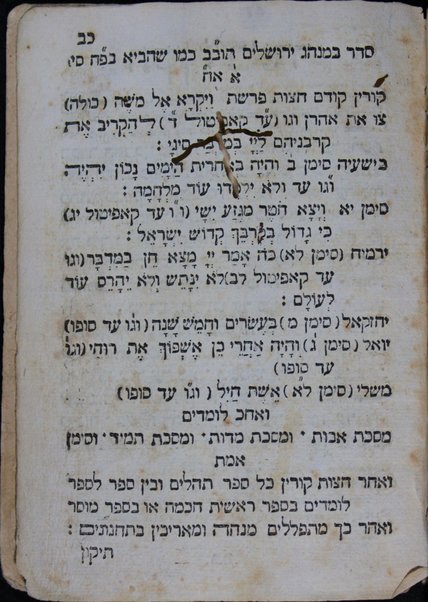 כב
סדר במנהג ירושלים תובב כמו שהביא בפ״ח סי׳
א׳ אח״
קורין קודם חצות פרשת וַיִּקְרָא אֶל מֹשֶׁה (כולה)
צו את אהרן וגו (עד קאפיטול ד) לְהַקְרִיב אֶת
קרבניהם לַיְיָ בְּמִדְבַּר סִינָי :
בישעיה סימן ב וְהָיָה בְּאַחֲרִית הַיָּמִים נָכוֹן יִהְיֶה
וגו עד ולא יִלְמְדוּ עוֹד מִלְחָמָה :
סימן יא וְיָצָא חֹטֶר מִגֶּזַע יִשָׁי (וגו עד קאפיטול יג)
כִּי גָדוֹל בְּקִרְבֵּךְ קְדוֹשׁ יִשְׂרָאֵל :
ירמיה (סימן לא) כֹּה אָמַר יְיָ מָצָא חֵן בַּמִּדְבָּר (וגו
עד קאפיטול לב) לֹא יִנָּתֵשׁ וְלֹא יֵהָרֵס עוֹד
לְעוֹלָם :
יחזקאל (סימן מ) בְּעֶשְׂרִים וְחָמֵשׁ שָׁנָה (וגו עד סופו)
יואל (סימן ג) וְהָיָה אַחֲרֵי כֵן אֶשְׁפּוֹךְ אֶת רוּחִי (וגו
עד סופו)
משלי (סימן לא) אֵשֶׁת חַיִל (וגו עד סופו)
ואחכ לומדים
מסכת אבות ׳ ומסכת מדות ׳ ומסכת תמיד ׳ וסימן
אמת
ואחר חצות קורין כל ספר תהלים ובין ספר לספר
לומדים בספר ראשית חכמה או בספר מוסר
ואחר כך מתפללים מנחה ומאריכין בתחנונים :
תיקון